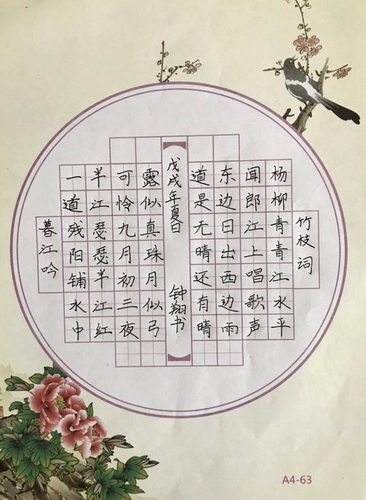 竹枝词
杨柳青青江水平
闻郎江上唱歌声
东边日出西边雨
道是无晴还有晴
戊戌年夏日 钟翔书
露似真珠月似弓
可怜九月初三夜
半江瑟瑟半江红
一道残阳铺水中
暮江吟
A4-63